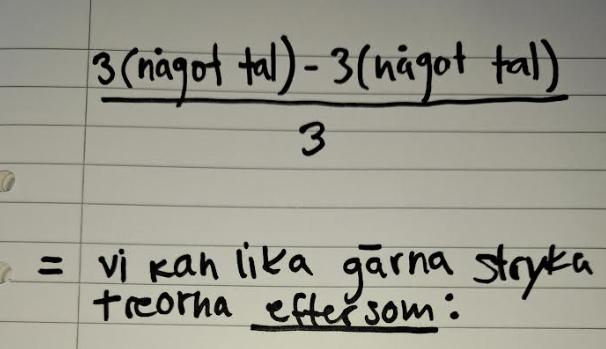 3(något tal) - 3(något tal)
3
= vi kan lika gärna stryka
treorna eftersom: